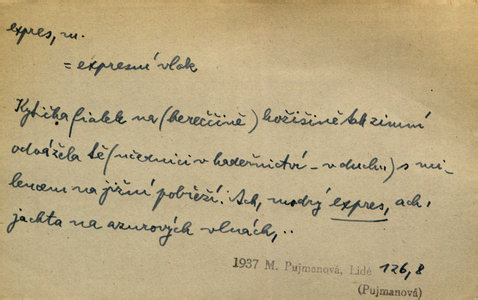 expres, m.
= expresní vlak
Kytička fialek na (hereččině) kožišině tak zimní
odvážela tě (učednici v kadeřnictví – v duchu) s mi-
lencem na jižní pobřeží. Ach, modrý expres, ach,
jachta na azurových vlnách,..
1937 M. Pujmanová, Lidé 126,8
(Pujmanová)